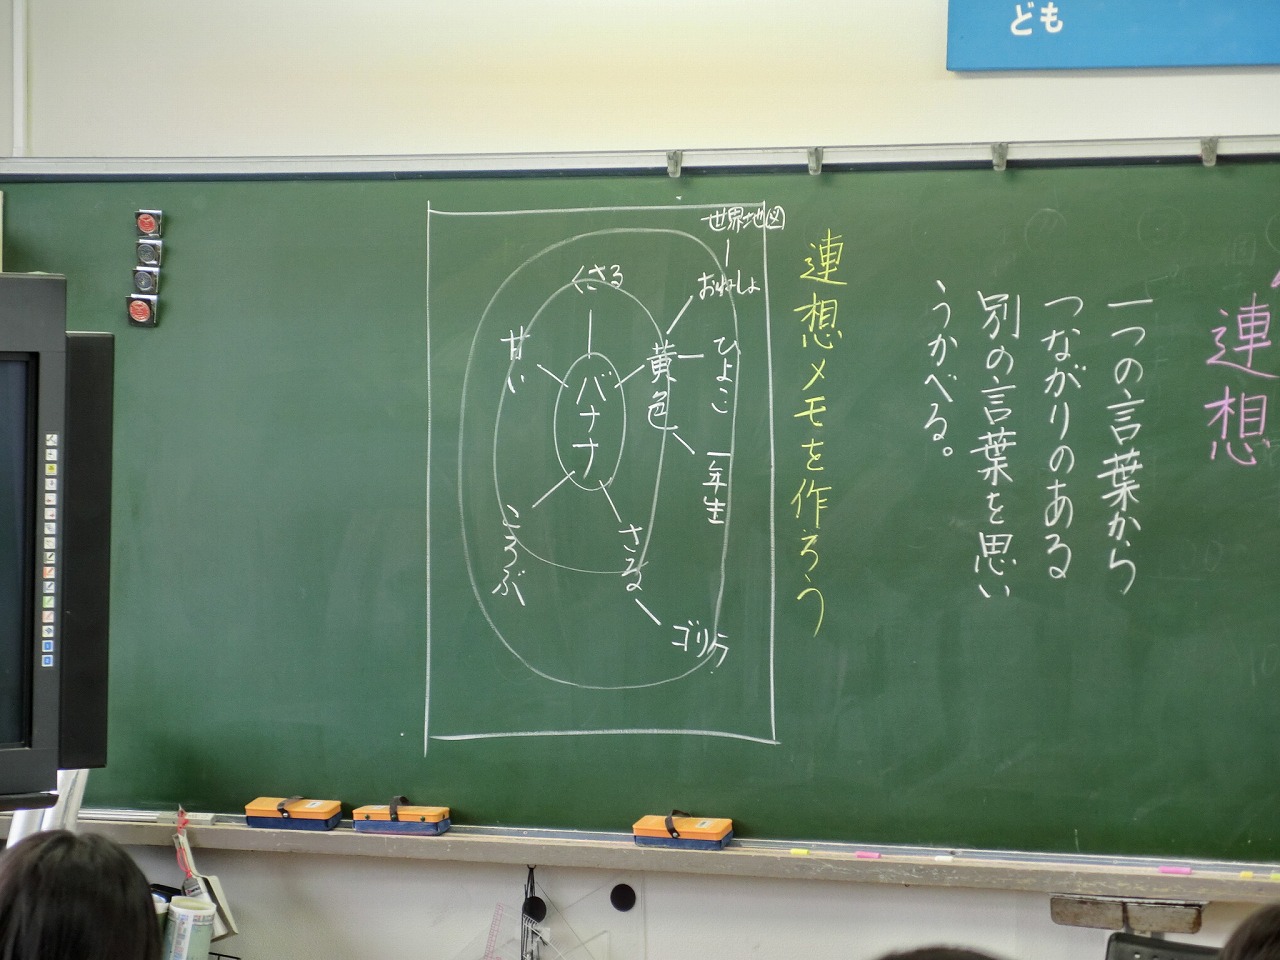 ども
連想
一つの言葉から
つながりのある
別の言葉を思い
うかべる。
連想メモを作ろう
世界地図
おねしょ
ひよこ
黄色
一年生
くさる
甘い
バナナ
さる
ゴリラ
こうぶ